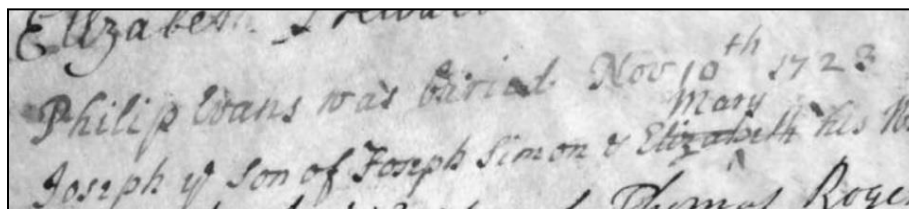 Elizabeth
Philip Evans was buried Nov 10th 1723
Mary
Joseph ye son of Joseph Simon & Elizabeth his
Thomas Roge